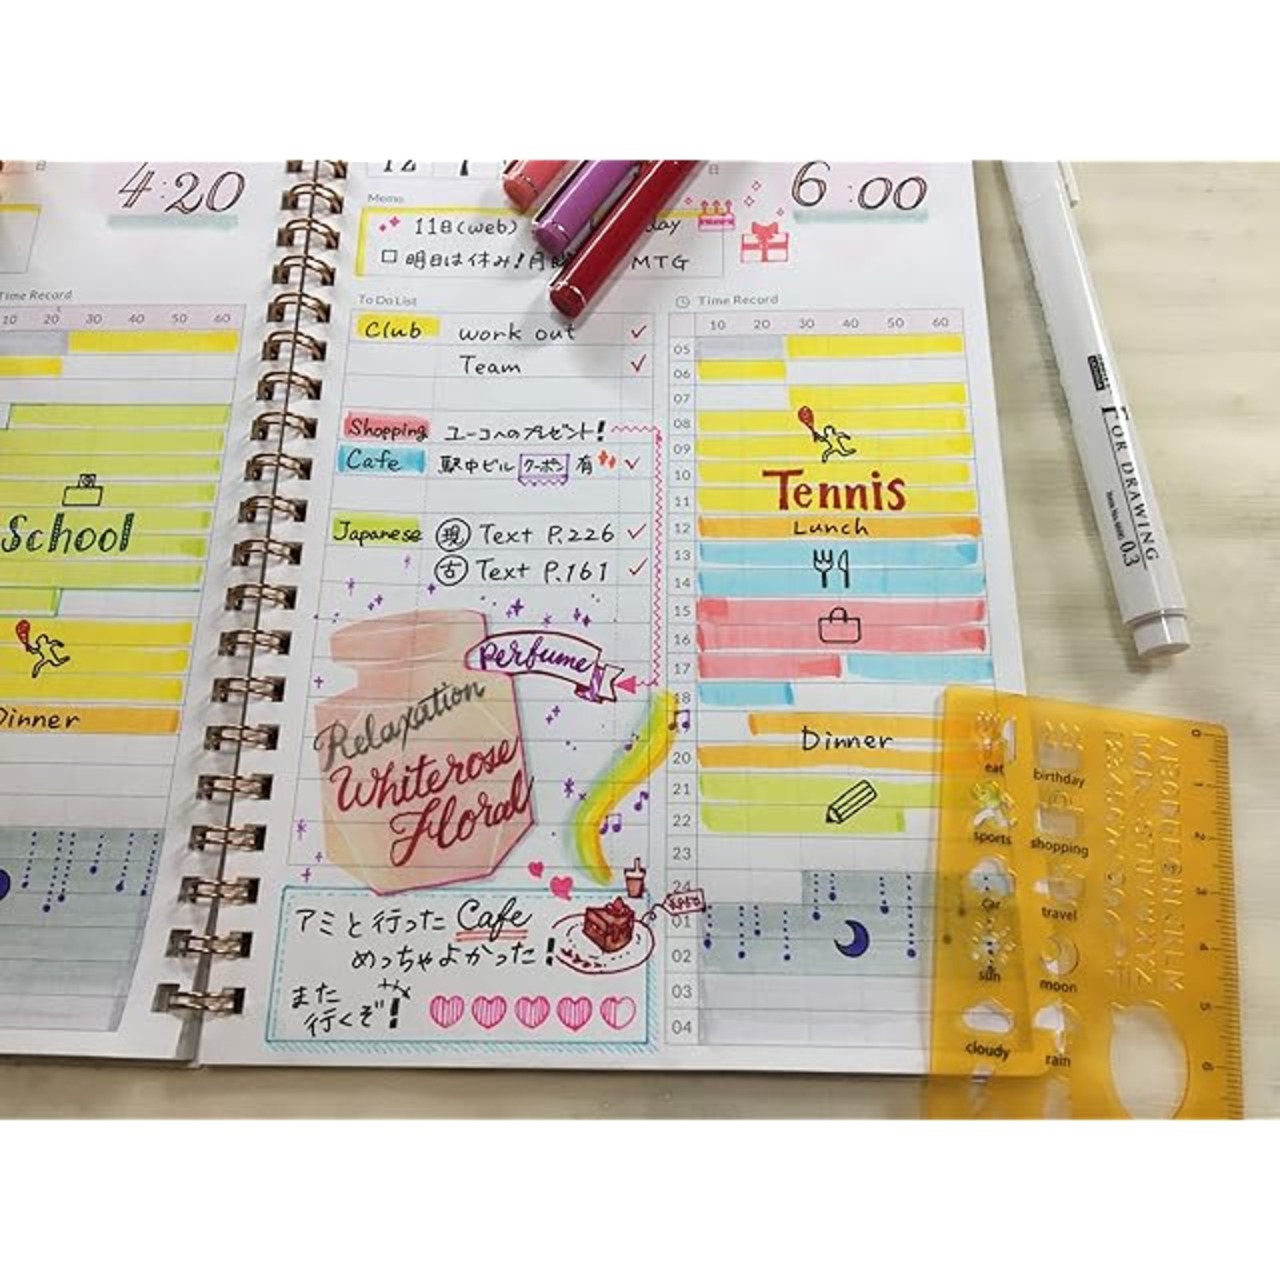 4:20
Time Record
10 20 30 40 50 60
School
Dinner
12
6:00
Memo
11日(web)
day
明日は休み!月
MTG
To Do List
Club work out ✓
Team ✓
Shopping ユーコへのプレゼント!
Cafe 駅中ビル クーポン 有 ✓
Japanese 現 Text P.226 ✓
古 Text P.161 ✓
Perfume
Relaxation
Whiterose
Floral
アミと行った Cafe
めっちゃよかった!
また
行くぞ!
Time Record
10 20 30 40 50 60
05
06
07
08
09
10
Tennis
11
12 Lunch
13
14
15
16
17
18
Dinner
20
21
22
23
24
01
02
03
04
FOR DRAWING
0.3
eat birthday
sports shopping
car travel
sun moon
cloudy rain
0
1
2
3
4
5
6